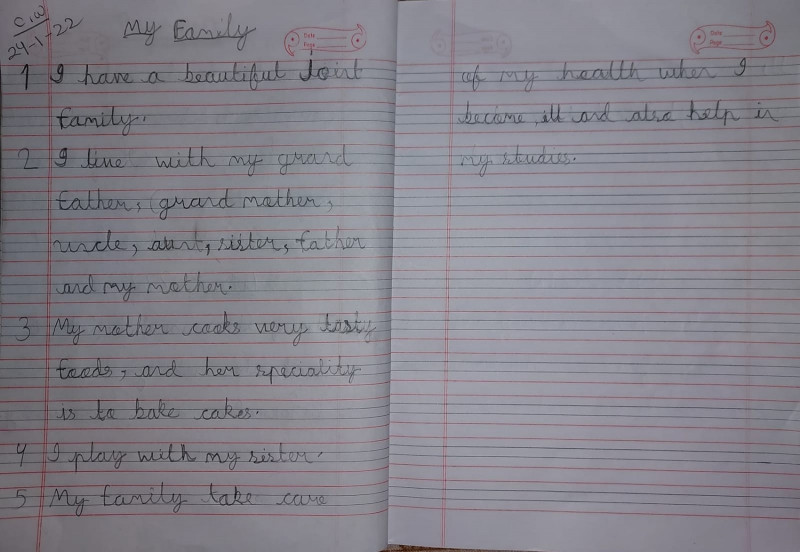 C.W
24-1-22
My Family
Date
Page
1 I have a beautiful Joint
family.
2 I live with my grand
father, grand mother,
uncle, aunt, sister, father
and my mother.
3 My mother cooks very tasty
foods, and her speciality
is to bake cakes.
4 I play with my sister.
5 My family take care
Date
Page
of my health when I
become, ill and also help in
my studies.